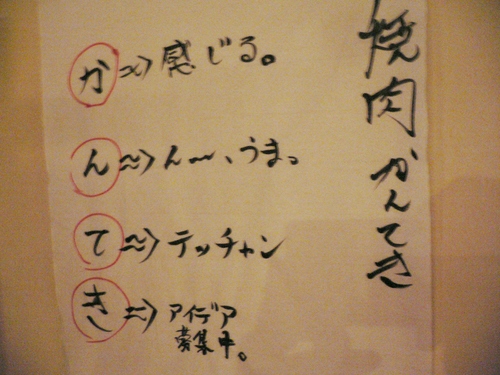 焼肉 かんてき
か≈>感じる。
ん≈>ん〜、うま。
て≈>テッチャン
き≈>アイデア
募集中。